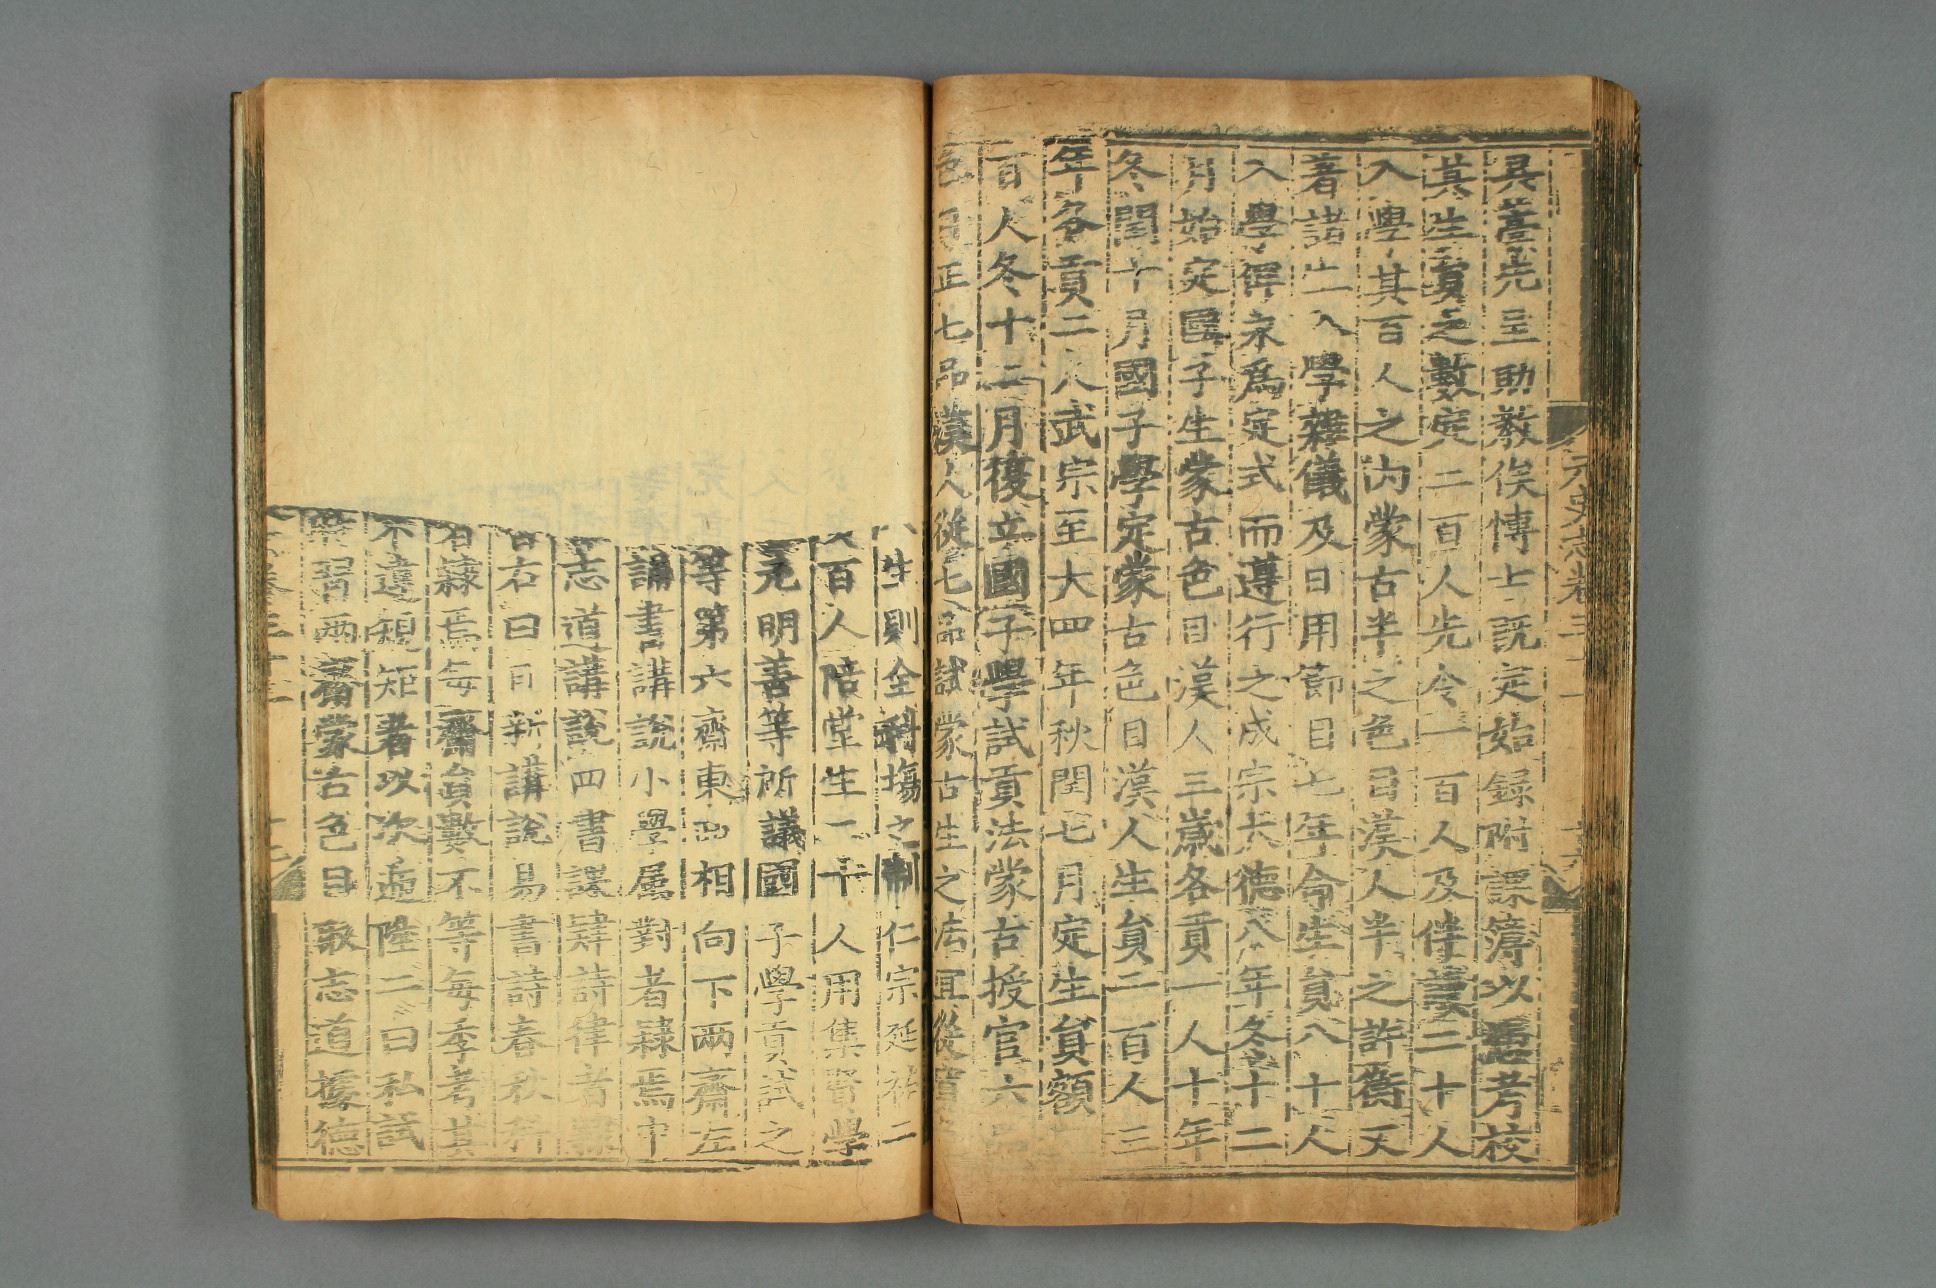 具藁先呈助教俟博士既定始録附課簿以憑考校
其生員之數定二百人先令一百人及伴讀二十人
入學其百人之內蒙古半之色目漢人半之許衡又
著諸生入學雜儀及日用節目七年命生員八十人
入學俾永爲定式而遵行之成宗大德八年冬十二
月始定國子生蒙古色目漢人三歲各貢一人十年
冬閏十月國子學定蒙古色目漢人生員二百人三
年各貢二人武宗至大四年秋閏七月定生員額
百人冬十二月復立國子學試貢法蒙古授官六品
色目正七品漢人從七品試蒙古生之法宜從寬
元史志卷三十一 十六
生則全科塲之制仁宗延祐二
百人陪堂生二十人用集賢學
元明善等所議國子學貢試之
等第六齋東西相向下兩齋左
誦書講說小學屬對者隸焉中
志道講說四書課肄詩律者隸
右曰日新講說易書詩春秋科
隸焉每齋員數不等每季考其
不違規矩者以次遞陞二曰私試
習兩齋蒙古色目志道據德
卷三十一 十七